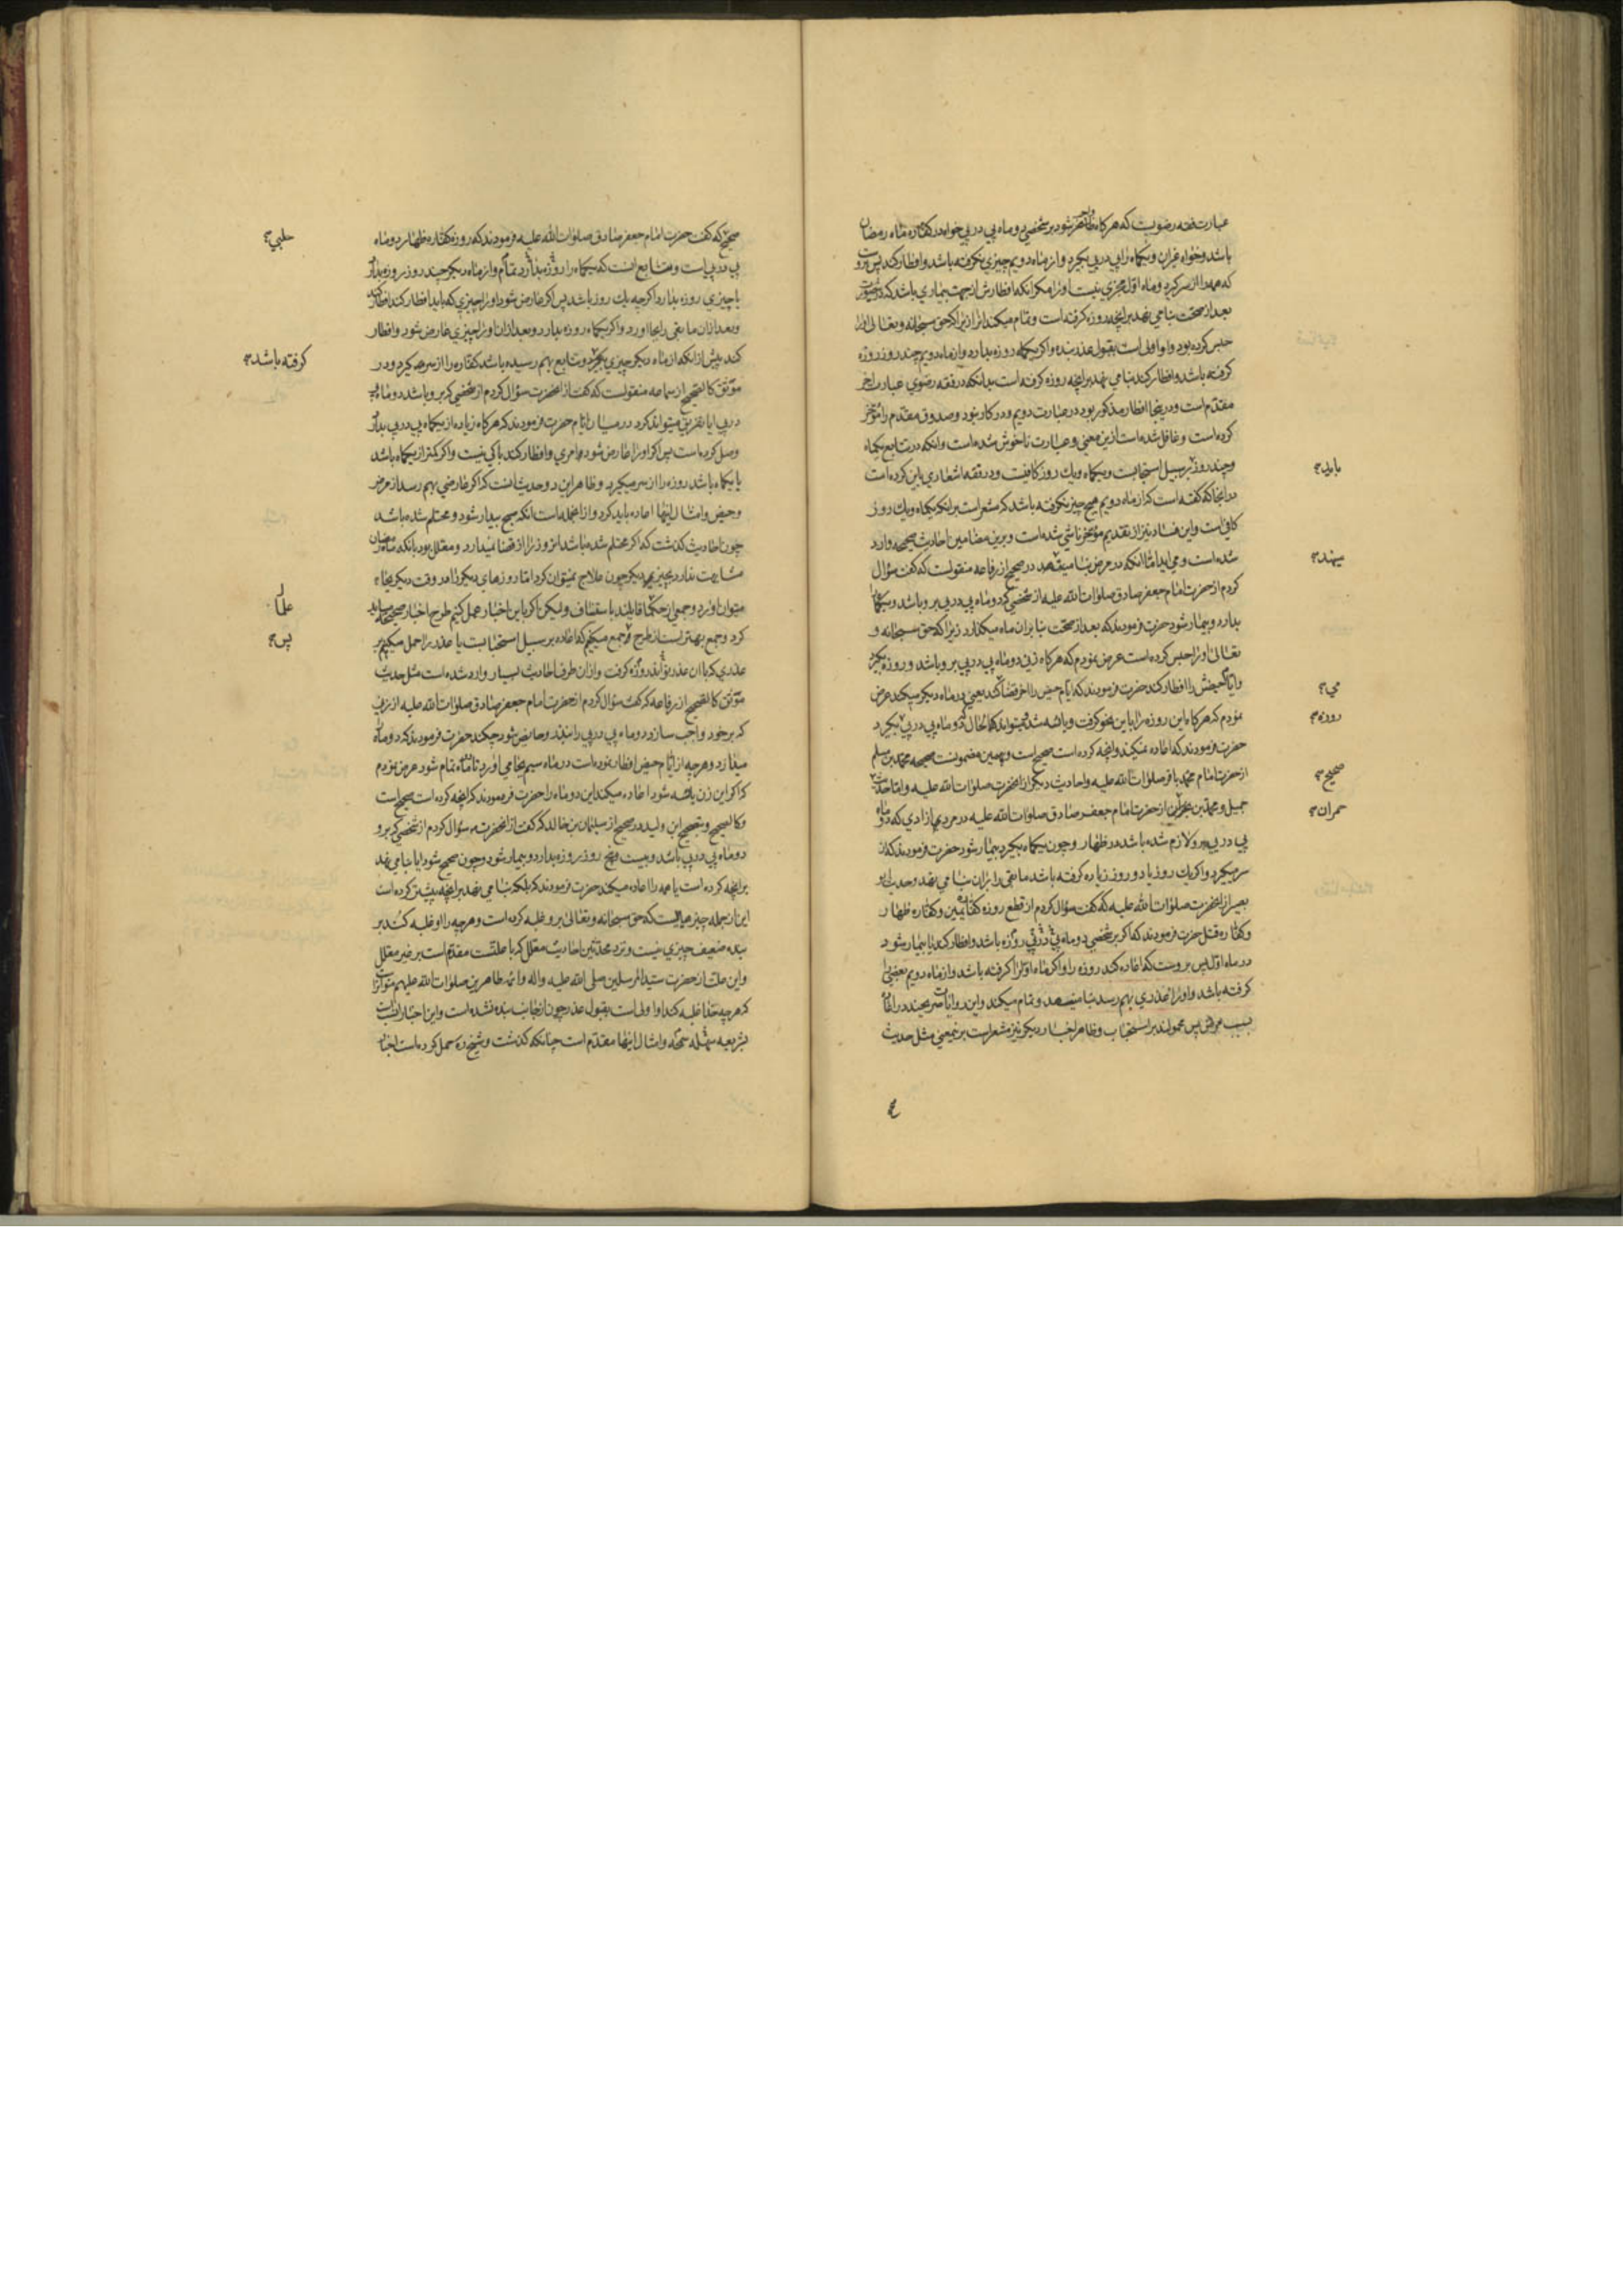 عبارت فقه رضویست که هرگاه واجب شود بر شخصی دو ماه پی در پی خواه در کفاره ماه رمضان
باشد و خواه غیران و یکماه را پی در پی بگیرد و از ماه دویم چیزی نگرفته باشد و افطار کند پس بروست
که همه را از سر گیرد و ماه اول مجزی نیست او را مگر آنکه افطارش از جهت بیماری باشد که در
بعد از صحت بنا می نهد بر آنچه روزه گرفته است و تمام میکند آنرا زیرا که حق سبحانه و تعالی او را
حبس کرده بود و او اولی است بقبول عذر بنده و اگر یکماه روزه بدارد و از ماه دویم چند روز روزه
گرفته باشد و افطار کند بنا می نهد بر آنچه روزه گرفته است بدانکه در فقه رضوی عبارت آخر
مقدم است و در اینجا افطار مذکور بود در عبارت دویم و در کار نبود و صدوق مقدم را مؤخر
کرده است و غافل شده است ازین معنی و عبارت ناخوش شده است و آنکه در تتابع یکماه
و چند روز بر سبیل استحبابست و یکماه و یک روز کافیست و در فقه اشعاری باین کرده است
در آنجا که گفته است که از ماه دویم هیچ چیز نگرفته باشد که مشعر است بر آنکه یکماه و یک روز
کافی است و این فساد نیز از تقدیم مؤخر ناشی شده است و برین مضامین احادیث صحیحه وارد
شده است و می آید اما آنکه در مرض بنا می نهد در صحیح از رفاعه منقولست که گفت سؤال
کردم از حضرت امام جعفر صادق صلوات الله علیه از شخصی که دو ماه پی در پی برو باشد و یکماه را
بدارد و بیمار شود حضرت فرمودند که بعد از صحت بنا بران ماه میگذارد زیرا که حق سبحانه و
تعالی او را حبس کرده است عرض نمودم که هرگاه زنی دو ماه پی در پی برو باشد و روزه بگیرد
و ایام حیضش را افطار کند حضرت فرمودند که ایام حیض را آخر قضا کند یعنی در ماه دیگر میکند عرض
نمودم که هرگاه این روزه را باین نحو گرفت و یائسه شد و میتواند که الحال دو ماه پی در پی بگیرد
حضرت فرمودند که اعاده نمیکند و آنچه کرده است صحیح است و بهمین مضمونست صحیحه محمد بن مسلم
از حضرت امام محمد باقر صلوات الله علیه و احادیث دیگر از آنحضرت صلوات الله علیه و اما حدیث
جمیل و محمد بن حمران از حضرت امام جعفر صادق صلوات الله علیه در مرد آزادی که دو ماه
پی در پی برو لازم شده باشد در ظهار و چون یکماه بگیرد بیمار شود حضرت فرمودند که از
سر میگیرد و اگر یک روز یا دو روز زیاده گرفته باشد ما بقی را بران بنا می نهد و حدیث ابو
بصیر از آنحضرت صلوات الله علیه که گفت سؤال کردم از قطع روزه کفاره یمین و کفاره ظهار
و کفاره قتل حضرت فرمودند که اگر بر شخصی دو ماه پی در پی روزه باشد و افطار کند یا بیمار شود
در ماه اول پس بروست که اعاده کند روزه را و اگر ماه اول را گرفته باشد و از ماه دویم بعضی را
گرفته باشد و او را عذری بهم رسد بنا می نهد و تمام میکند و این روایات صریحند در
بسبب مرض پس محمولند بر استحباب و ظاهر اخبار دیگر نیز مشعر است برینمعنی مثل حدیث
باین
می نهد
می
روزه
صحیح
حمران
صحیح که گفت حضرت امام جعفر صادق صلوات الله علیه فرمودند که روزه کفاره ظهار دو ماه
پی در پی است و تتابع آنست که یکماه را روزه بدارد تمام و از ماه دیگر چند روز روزه بدارد
یا چیزی روزه بدارد اگرچه یک روز باشد پس اگر عارض شود او را چیزی که باید افطار کند افطار کند
و بعد ازان ما بقی را بجا آورد و اگر یکماه روزه بدارد و بعد ازان او را چیزی عارض شود و افطار
کند پیش از آنکه از ماه دیگر چیزی بگیرد و تتابع بهم رسیده باشد کفاره را از سر میگیرد و در
موثق کالصحیح از سماعه منقولست که گفت از آنحضرت سؤال کردم از شخصی که برو باشد دو ماه پی
در پی آیا تفریق میتواند کرد در میان ایام حضرت فرمودند که هرگاه زیاده از یکماه پی در پی بدارد
وصل کرده است پس اگر او را عارض شود امری و افطار کند باکی نیست و اگر کمتر از یکماه باشد
یا یکماه باشد روزه را از سر میگیرد و ظاهر این دو حدیث آنست که اگر عارضی بهم رسد از مرض
و حیض و امثال اینها اعاده باید کرد و از آنجمله است آنکه صبح بیدار شود و محتلم شده باشد
چون احادیث گذشت که اگر محتلم شده باشد آن روز را از قضا نمیدارد و معلل بود بآنکه ماه رمضان
مشابهت ندارد بچیزهای دیگر چون علاج نمیتوان کرد اما روزهای دیگر را در وقت دیگر بجا
میتوان آورد و جمعی از حکما قایلند باستیناف ولیکن اگر باین اخبار عمل کنیم طرح اخبار صحیحه میباید
کرد و جمع بهتر است از طرح و جمع میکنیم که اعاده بر سبیل استحبابست یا عذر را حمل میکنیم بر
عذری که با آن عذر تواند روزه گرفت و از آن طرف احادیث بسیار وارد شده است مثل حدیث
موثق کالصحیح از رفاعه که گفت سؤال کردم از حضرت امام جعفر صادق صلوات الله علیه از زنی
که بر خود واجب سازد دو ماه پی در پی را بنذر و حایض شود چکند حضرت فرمودند که دو ماه
میدارد و هر چه از ایام حیض افطار نموده است در ماه سیم بجا می آورد تا دو ماه تمام شود عرض نمودم
که اگر این زن یائسه شود اعاده میکند این دو ماه را حضرت فرمودند که آنچه کرده است صحیح است
و کالصحیح و صحیح ابن ولید و در صحیح از سلیمان بن خالد که گفت از آنحضرت سؤال کردم از شخصی که برو
دو ماه پی در پی باشد و بیست و پنج روز روزه بدارد و بیمار شود و چون صحیح شود آیا بنا می نهد
بر آنچه کرده است یا همه را اعاده میکند حضرت فرمودند که بلکه بنا می نهد بر آنچه پیشتر کرده است
این از جمله چیزهاییست که حق سبحانه و تعالی برو غلبه کرده است و هر چه را او غلبه کند بر
بنده ضعیف چیزی نیست و نزد محدثین احادیث معلل که با علتست مقدم است بر غیر معلل
و این علت از حضرت سید المرسلین صلی الله علیه و آله و ائمه طاهرین صلوات الله علیهم متواترست
که هر چه خدا غلبه کند او اولی است بقبول عذر چون از جانب بنده نشده است و این اخبار انسبست
بشریعه سهله سمحه و امثال اینها مقدم است چنانکه گذشت و شیخ ره حمل کرده است اخبار
حلبی
گرفته باشد
علما
پس